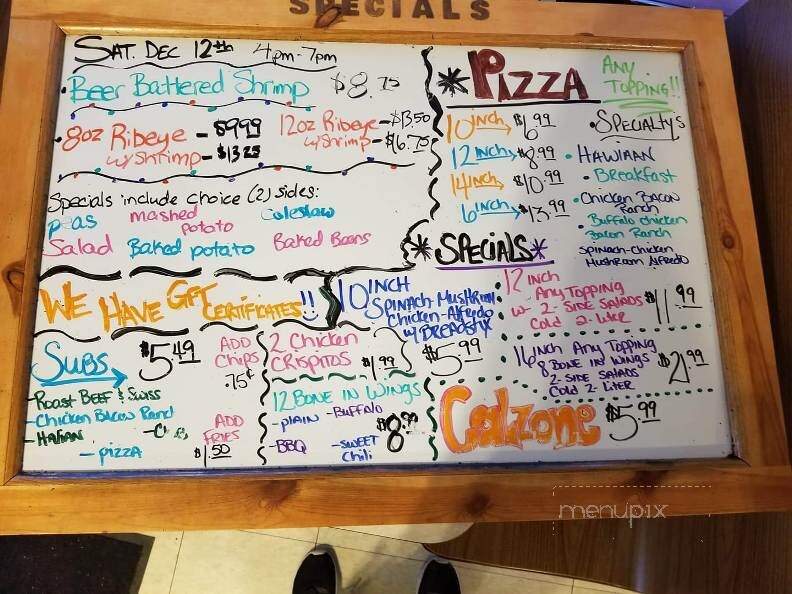 SPECIALS
SAT. DEC 12th 4pm-7pm
Beer Battered Shrimp $8.75
8oz Ribeye - $9.99
w/ Shrimp - $13.25
12oz Ribeye - $13.50
w/ Shrimp - $16.75
Specials include choice (2) sides:
peas mashed potato Coleslaw
Salad Baked potato Baked Beans
WE HAVE GIFT CERTIFICATES!!
SUBS $5.49
ADD Chips .75¢
- Roast Beef & Swiss
- Chicken Bacon Ranch
- Italian
- pizza
ADD FRIES $1.50
2 Chicken CRISPITOS $1.99
12 BONE IN WINGS
- PLAIN - Buffalo
$8.99
- BBQ - SWEET Chili
* PIZZA
ANY TOPPING!!
10 INCH $6.99
12 INCH $8.99
14 INCH $10.99
16 INCH $13.99
• SPECIALTY'S
• HAWIIAN
• Breakfast
• Chicken BACON Ranch
• Buffalo chicken Bacon Ranch
SPINACH-Chicken MUSHROOM Alfredo
* SPECIALS *
10 INCH
SPINACH-MUSHROOM
Chicken-Alfredo
w/ BREADSTIX
$5.99
12 INCH
Any TOPPING
w- 2-SIDE SALADS
Cold 2-Liter
$11.99
16 INCH Any TOPPING
8 BONE IN WINGS
2-SIDE SALADS
Cold 2-LITER
$21.99
Calzone $5.99
menupix